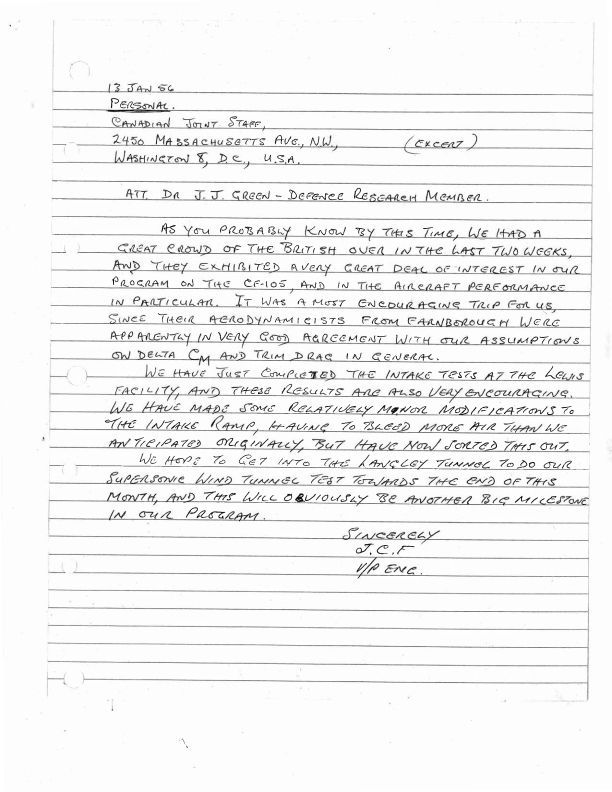 13 JAN 56
PERSONAL.
CANADIAN JOINT STAFF,
2450 MASSACHUSETTS AVE., N.W., (EXCERT)
WASHINGTON 8, D.C., U.S.A.
ATT. DR J.J. GREEN - DEFENCE RESEARCH MEMBER.
AS YOU PROBABLY KNOW BY THIS TIME, WE HAD A
GREAT CROWD OF THE BRITISH OVER IN THE LAST TWO WEEKS,
AND THEY EXHIBITED A VERY GREAT DEAL OF INTEREST IN OUR
PROGRAM ON THE CF-105, AND IN THE AIRCRAFT PERFORMANCE
IN PARTICULAR. IT WAS A MOST ENCOURAGING TRIP FOR US,
SINCE THEIR AERODYNAMICISTS FROM FARNBOROUGH WERE
APPARENTLY IN VERY GOOD AGREEMENT WITH OUR ASSUMPTIONS
ON DELTA CM AND TRIM DRAG IN GENERAL.
WE HAVE JUST COMPLETED THE INTAKE TESTS AT THE LEWIS
FACILITY, AND THESE RESULTS ARE ALSO VERY ENCOURAGING.
WE HAVE MADE SOME RELATIVELY MINOR MODIFICATIONS TO
THE INTAKE RAMP, HAVING TO BLEED MORE AIR THAN WE
ANTICIPATED ORIGINALLY, BUT HAVE NOW SORTED THIS OUT.
WE HOPE TO GET INTO THE LANGLEY TUNNEL TO DO OUR
SUPERSONIC WIND TUNNEL TEST TOWARDS THE END OF THIS
MONTH, AND THIS WILL OBVIOUSLY BE ANOTHER BIG MILESTONE
IN OUR PROGRAM.
SINCERELY
J.C.F
V/P ENG.